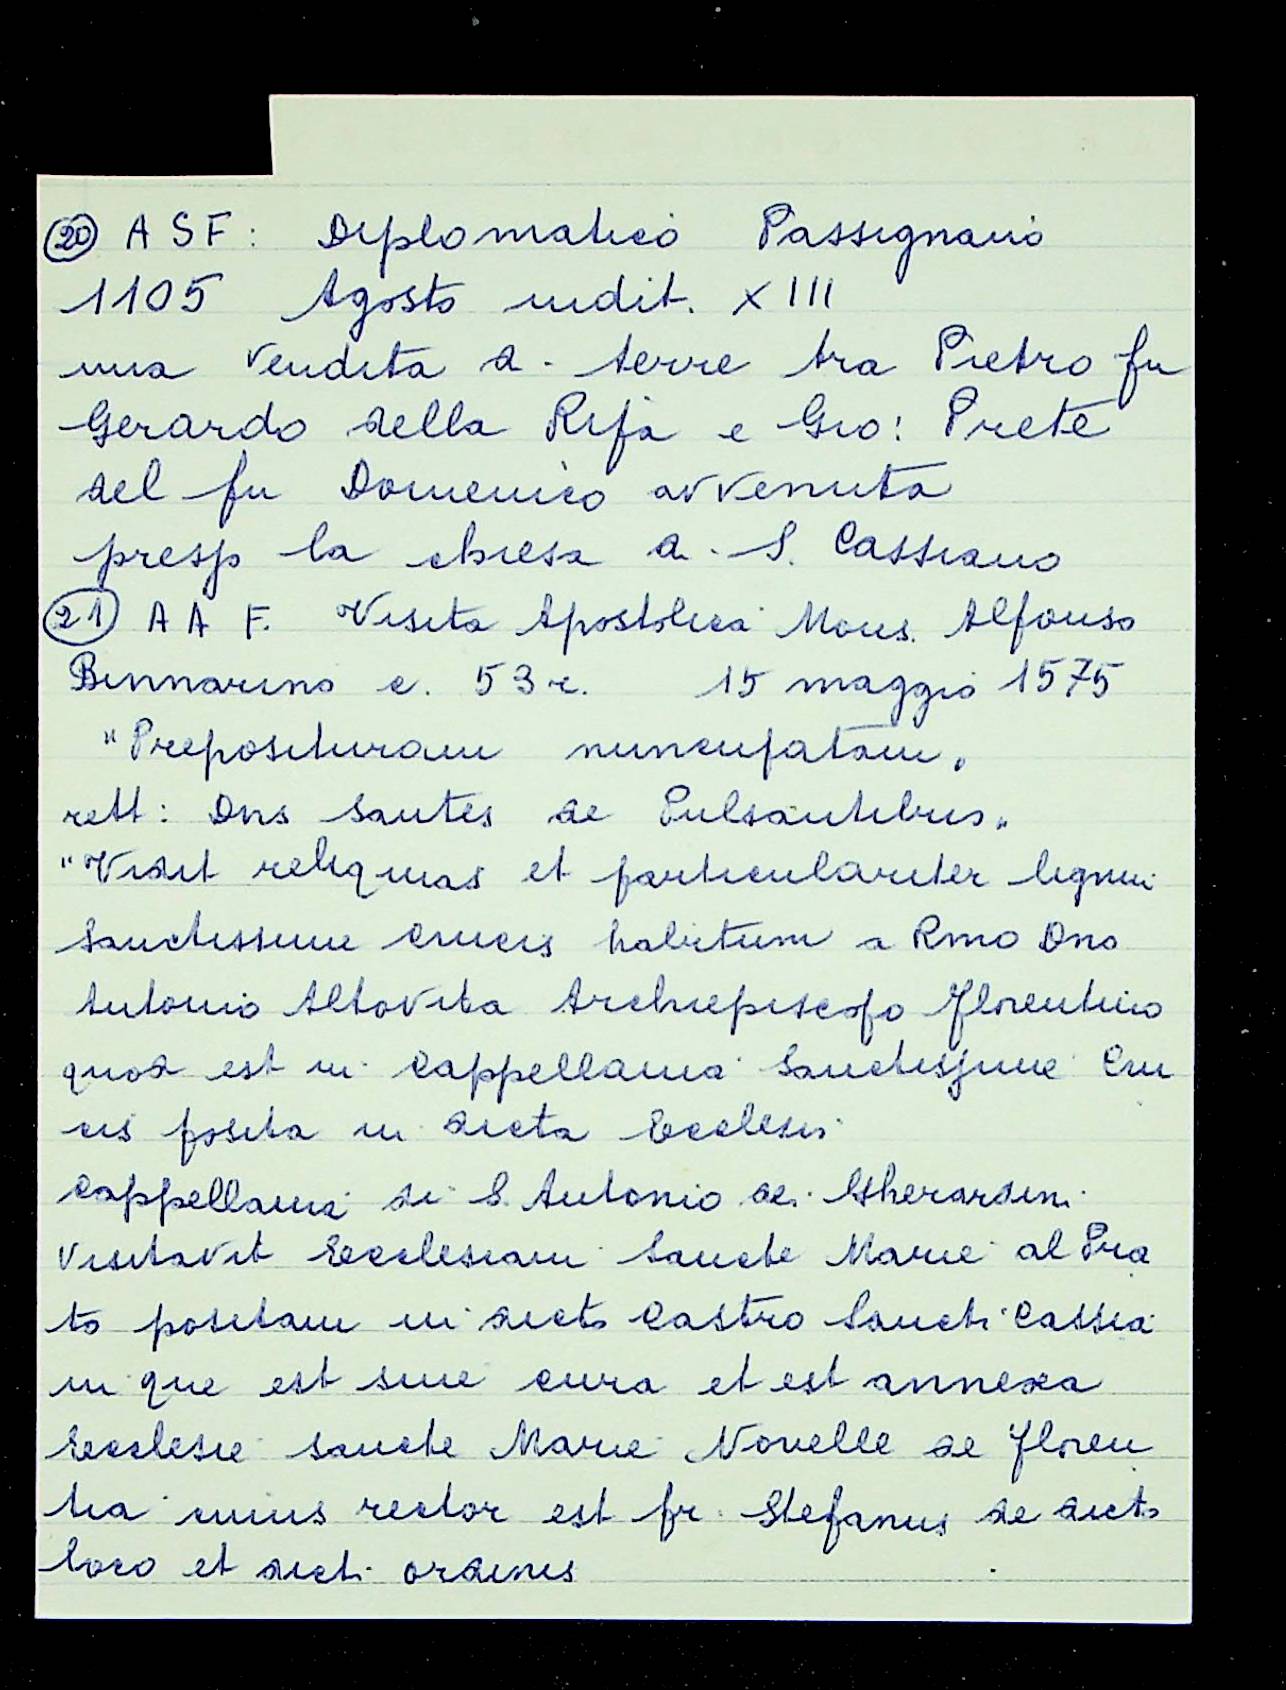 20 ASF: Diplomatico Passignano
1105 Agosto indit. XIII
una vendita di terre tra Pietro fu
Gerardo della Ripa e Gio: Prete
del fu Domenico avvenuta
presso la chiesa di S. Cassiano
21 A A F. Visita Apostolica Mons. Alfonso
Binnarino c. 53 r. 15 maggio 1575
"Preposituram nuncupatam"
rett: Dns Santes de Pulsantibus"
"Vidit reliquias et particulariter lignum
Sanctissime Crucis habitum a Rmo Dno
Antonio Altovita Archiepiscopo Florentino
quod est in Cappellania Sanctissime Cru
cis posita in dicta Ecclesia
Cappellania di S. Antonio dei Gherardini
Visitavit Ecclesiam Sancte Marie al Pra
to positam in dicto Castro Sancti Cassia
ni que est sine cura et est annexa
Ecclesie Sancte Marie Novelle de Floren
tia cuius rector est fr. Stefanus de dicto
loco et dicti ordinis